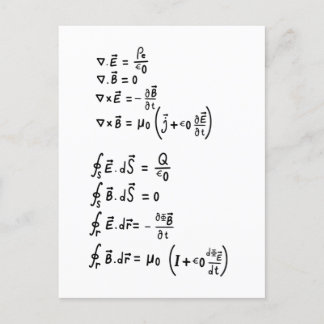 ∇.E⃗ = ρₑ/ϵ0
∇.B⃗ = 0
∇×E⃗ = -∂B⃗/∂t
∇×B⃗ = μ₀ (j⃗ + ϵ0 ∂E⃗/∂t)
∮_S E⃗.dS⃗ = Q/ϵ0
∮_S B⃗.dS⃗ = 0
∮_Γ E⃗.dr⃗ = - ∂Φ_B⃗/∂t
∮_Γ B⃗.dr⃗ = μ₀ (I + ϵ0 dΦ_E⃗/dt)